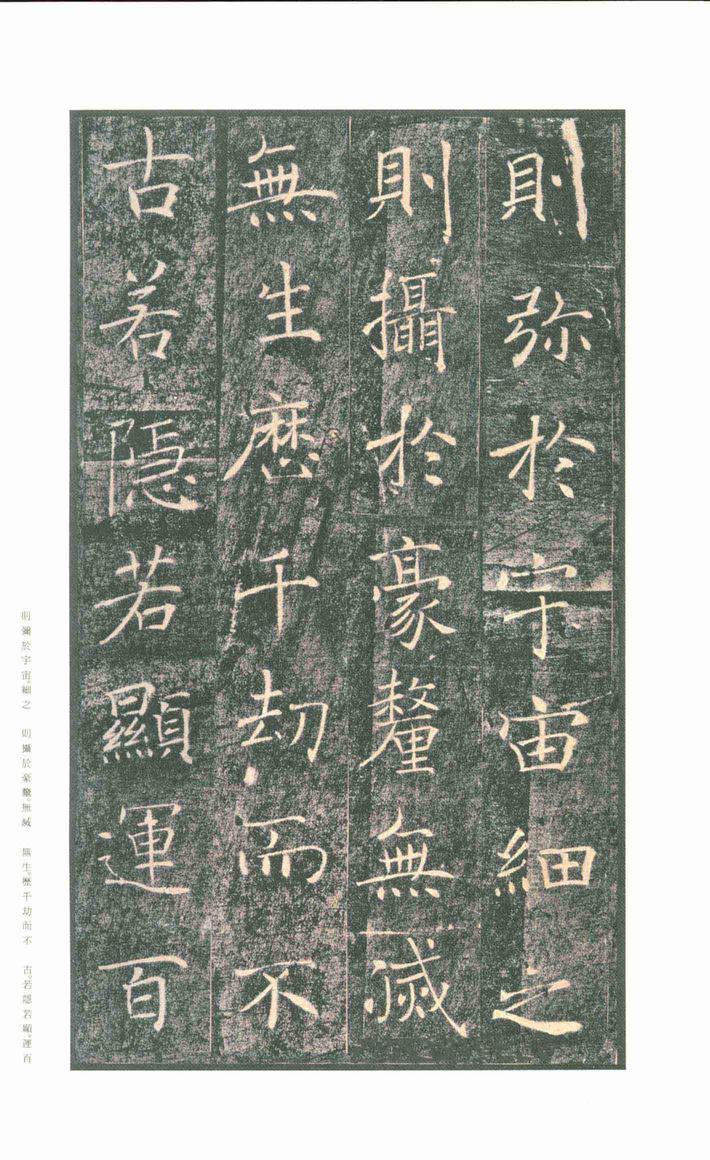 則弥於宇宙細之
則攝於豪釐無滅
無生歷千劫而不
古若隱若顯運百
則彌於宇宙。細之　則攝於豪釐。無滅　無生。歷千劫而不　古。若隱若顯。運百